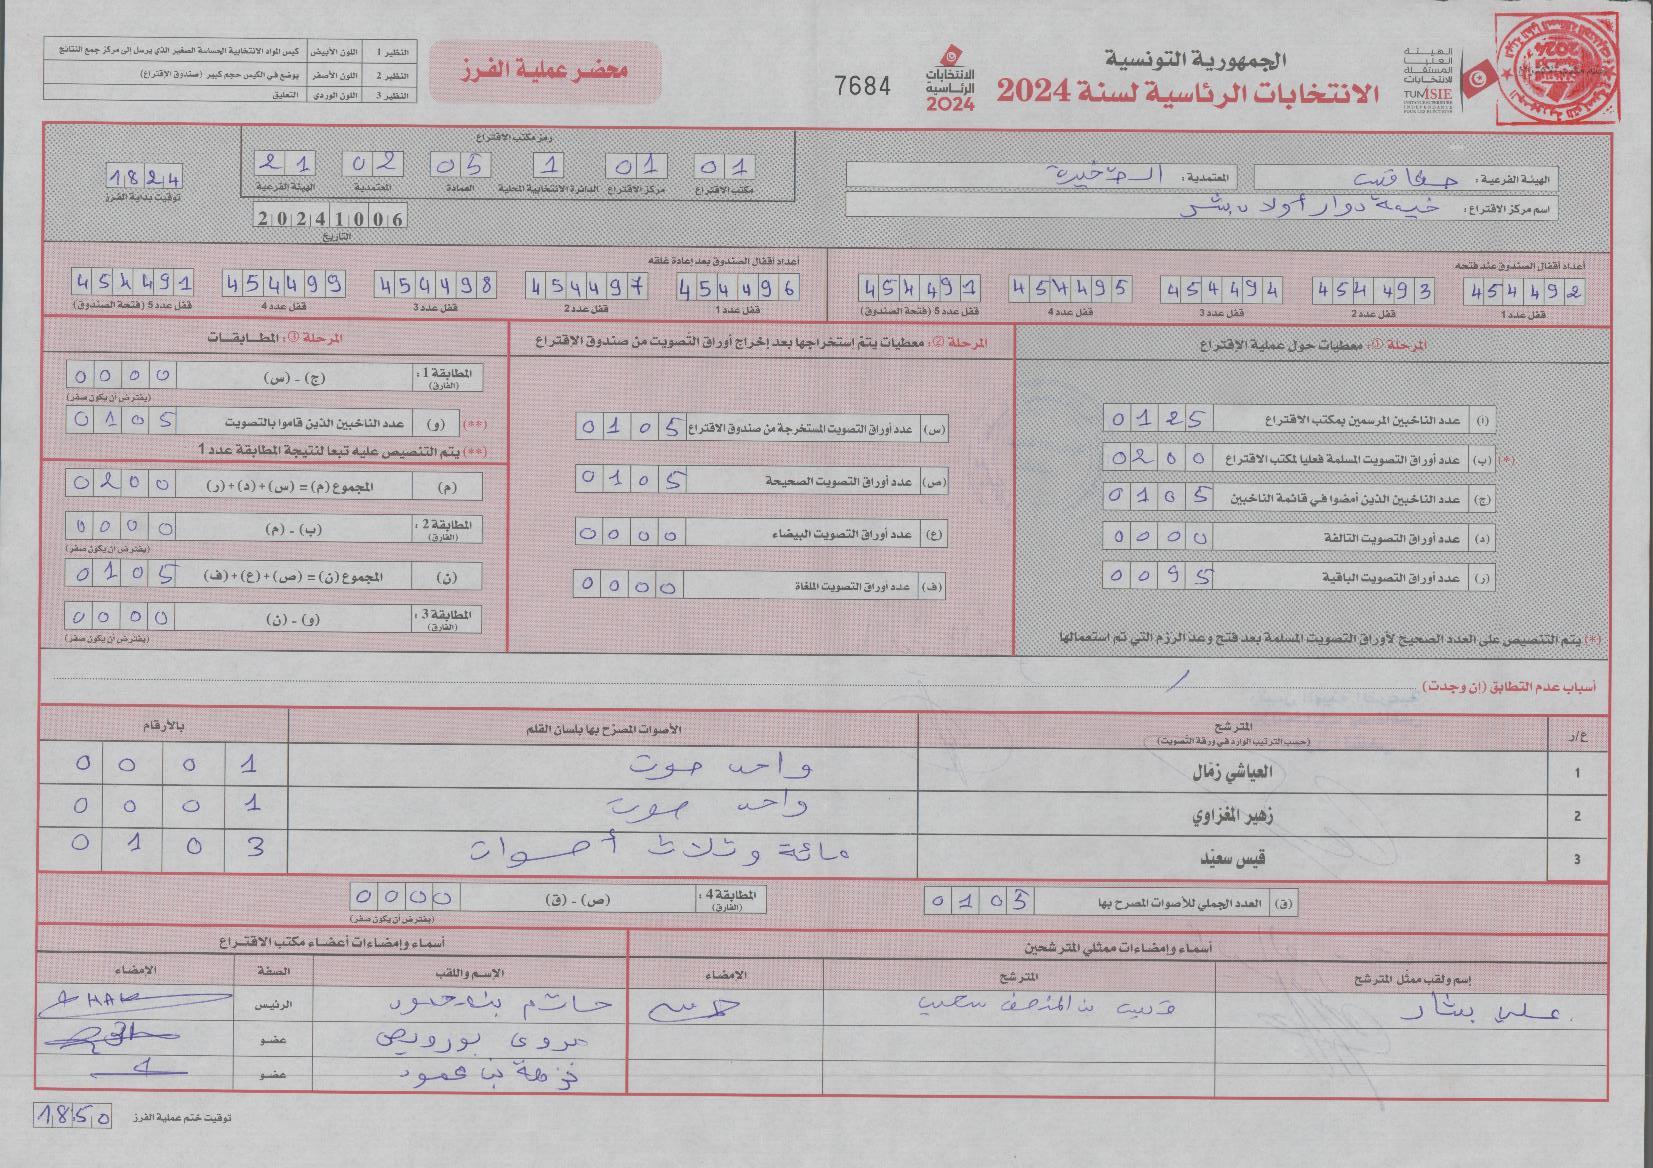 الجمهورية التونسية
الانتخابات الرئاسية لسنة 2024
الهيئة العليا المستقلة للانتخابات
TUNISIE
الانتخابات الرئاسية 2024
7684
محضر عملية الفرز
النظير 1 اللون الأبيض كيس المواد الانتخابية الحساسة الصغير الذي يرسل إلى مركز جمع النتائج
النظير 2 اللون الأصفر يوضع في الكيس حجم كبير (صندوق الاقتراع)
النظير 3 اللون الوردي التعليق
الهيئة الفرعية : صفاقس المعتمدية : الصخيرة
اسم مركز الاقتراع : خيمة دوار أولاد بشر
رمز مكتب الاقتراع
01 01 1 05 02 21
مكتب الاقتراع مركز الاقتراع الدائرة الانتخابية المحلية العمادة المعتمدية الهيئة الفرعية
20241006
التاريخ
1824
توقيت بداية الفرز
أعداد أقفال الصندوق عند فتحه
454492 454493 454494 454495 454491
قفل عدد 1 قفل عدد 2 قفل عدد 3 قفل عدد 4 قفل عدد 5 (فتحة الصندوق)
أعداد أقفال الصندوق بعد إعادة غلقه
454496 454497 454498 454499 454491
قفل عدد 1 قفل عدد 2 قفل عدد 3 قفل عدد 4 قفل عدد 5 (فتحة الصندوق)
المرحلة ①: معطيات حول عملية الإقتراع
(أ) عدد الناخبين المرسمين بمكتب الاقتراع 0125
(*) (ب) عدد أوراق التصويت المسلمة فعليا لمكتب الاقتراع 0200
(ج) عدد الناخبين الذين أمضوا في قائمة الناخبين 0105
(د) عدد أوراق التصويت التالفة 0000
(ر) عدد أوراق التصويت الباقية 0095
(*) يتم التنصيص على العدد الصحيح لأوراق التصويت المسلمة بعد فتح وعد الرزم التي تم استعمالها
المرحلة ②: معطيات يتم إستخراجها بعد إخراج أوراق التصويت من صندوق الاقتراع
(س) عدد أوراق التصويت المستخرجة من صندوق الاقتراع 0105
(ص) عدد أوراق التصويت الصحيحة 0105
(ع) عدد أوراق التصويت البيضاء 0000
(ف) عدد أوراق التصويت الملغاة 0000
المرحلة ③: المطابقات
المطابقة 1 : (الفارق) (ج) - (س) 0000
(يفترض أن يكون صفر)
(**) (و) عدد الناخبين الذين قاموا بالتصويت 0105
(**) يتم التنصيص عليه تبعا لنتيجة المطابقة عدد 1
(م) المجموع (م) = (س) + (د) + (ر) 0200
المطابقة 2 : (الفارق) (ب) - (م) 0000
(يفترض أن يكون صفر)
(ن) المجموع (ن) = (ص) + (ع) + (ف) 0105
المطابقة 3 : (الفارق) (و) - (ن) 0000
(يفترض أن يكون صفر)
أسباب عدم التطابق (إن وجدت) /
ع/ر المترشح (حسب الترتيب الوارد في ورقة التصويت) الأصوات المصرّح بها بلسان القلم بالأرقام
1 العياشي زمّال واحد صوت 0001
2 زهير المغزاوي واحد صوت 0001
3 قيس سعيّد مائة وثلاث أصوات 0103
(ق) العدد الجملي للأصوات المصرح بها 0105 المطابقة 4 : (الفارق) (ص) - (ق) 0000
(يفترض أن يكون صفر)
أسماء وإمضاءات ممثلي المترشحين
إسم ولقب ممثّل المترشح المترشح الإمضاء
علي بشار قيس بن المنصف سعيد
أسماء وإمضاءات أعضاء مكتب الاقتراع
الاسم واللقب الصفة الإمضاء
حاتم بن حمود الرئيس
مروى بورويص عضو
نزهة بن حمود عضو
توقيت ختم عملية الفرز 1850